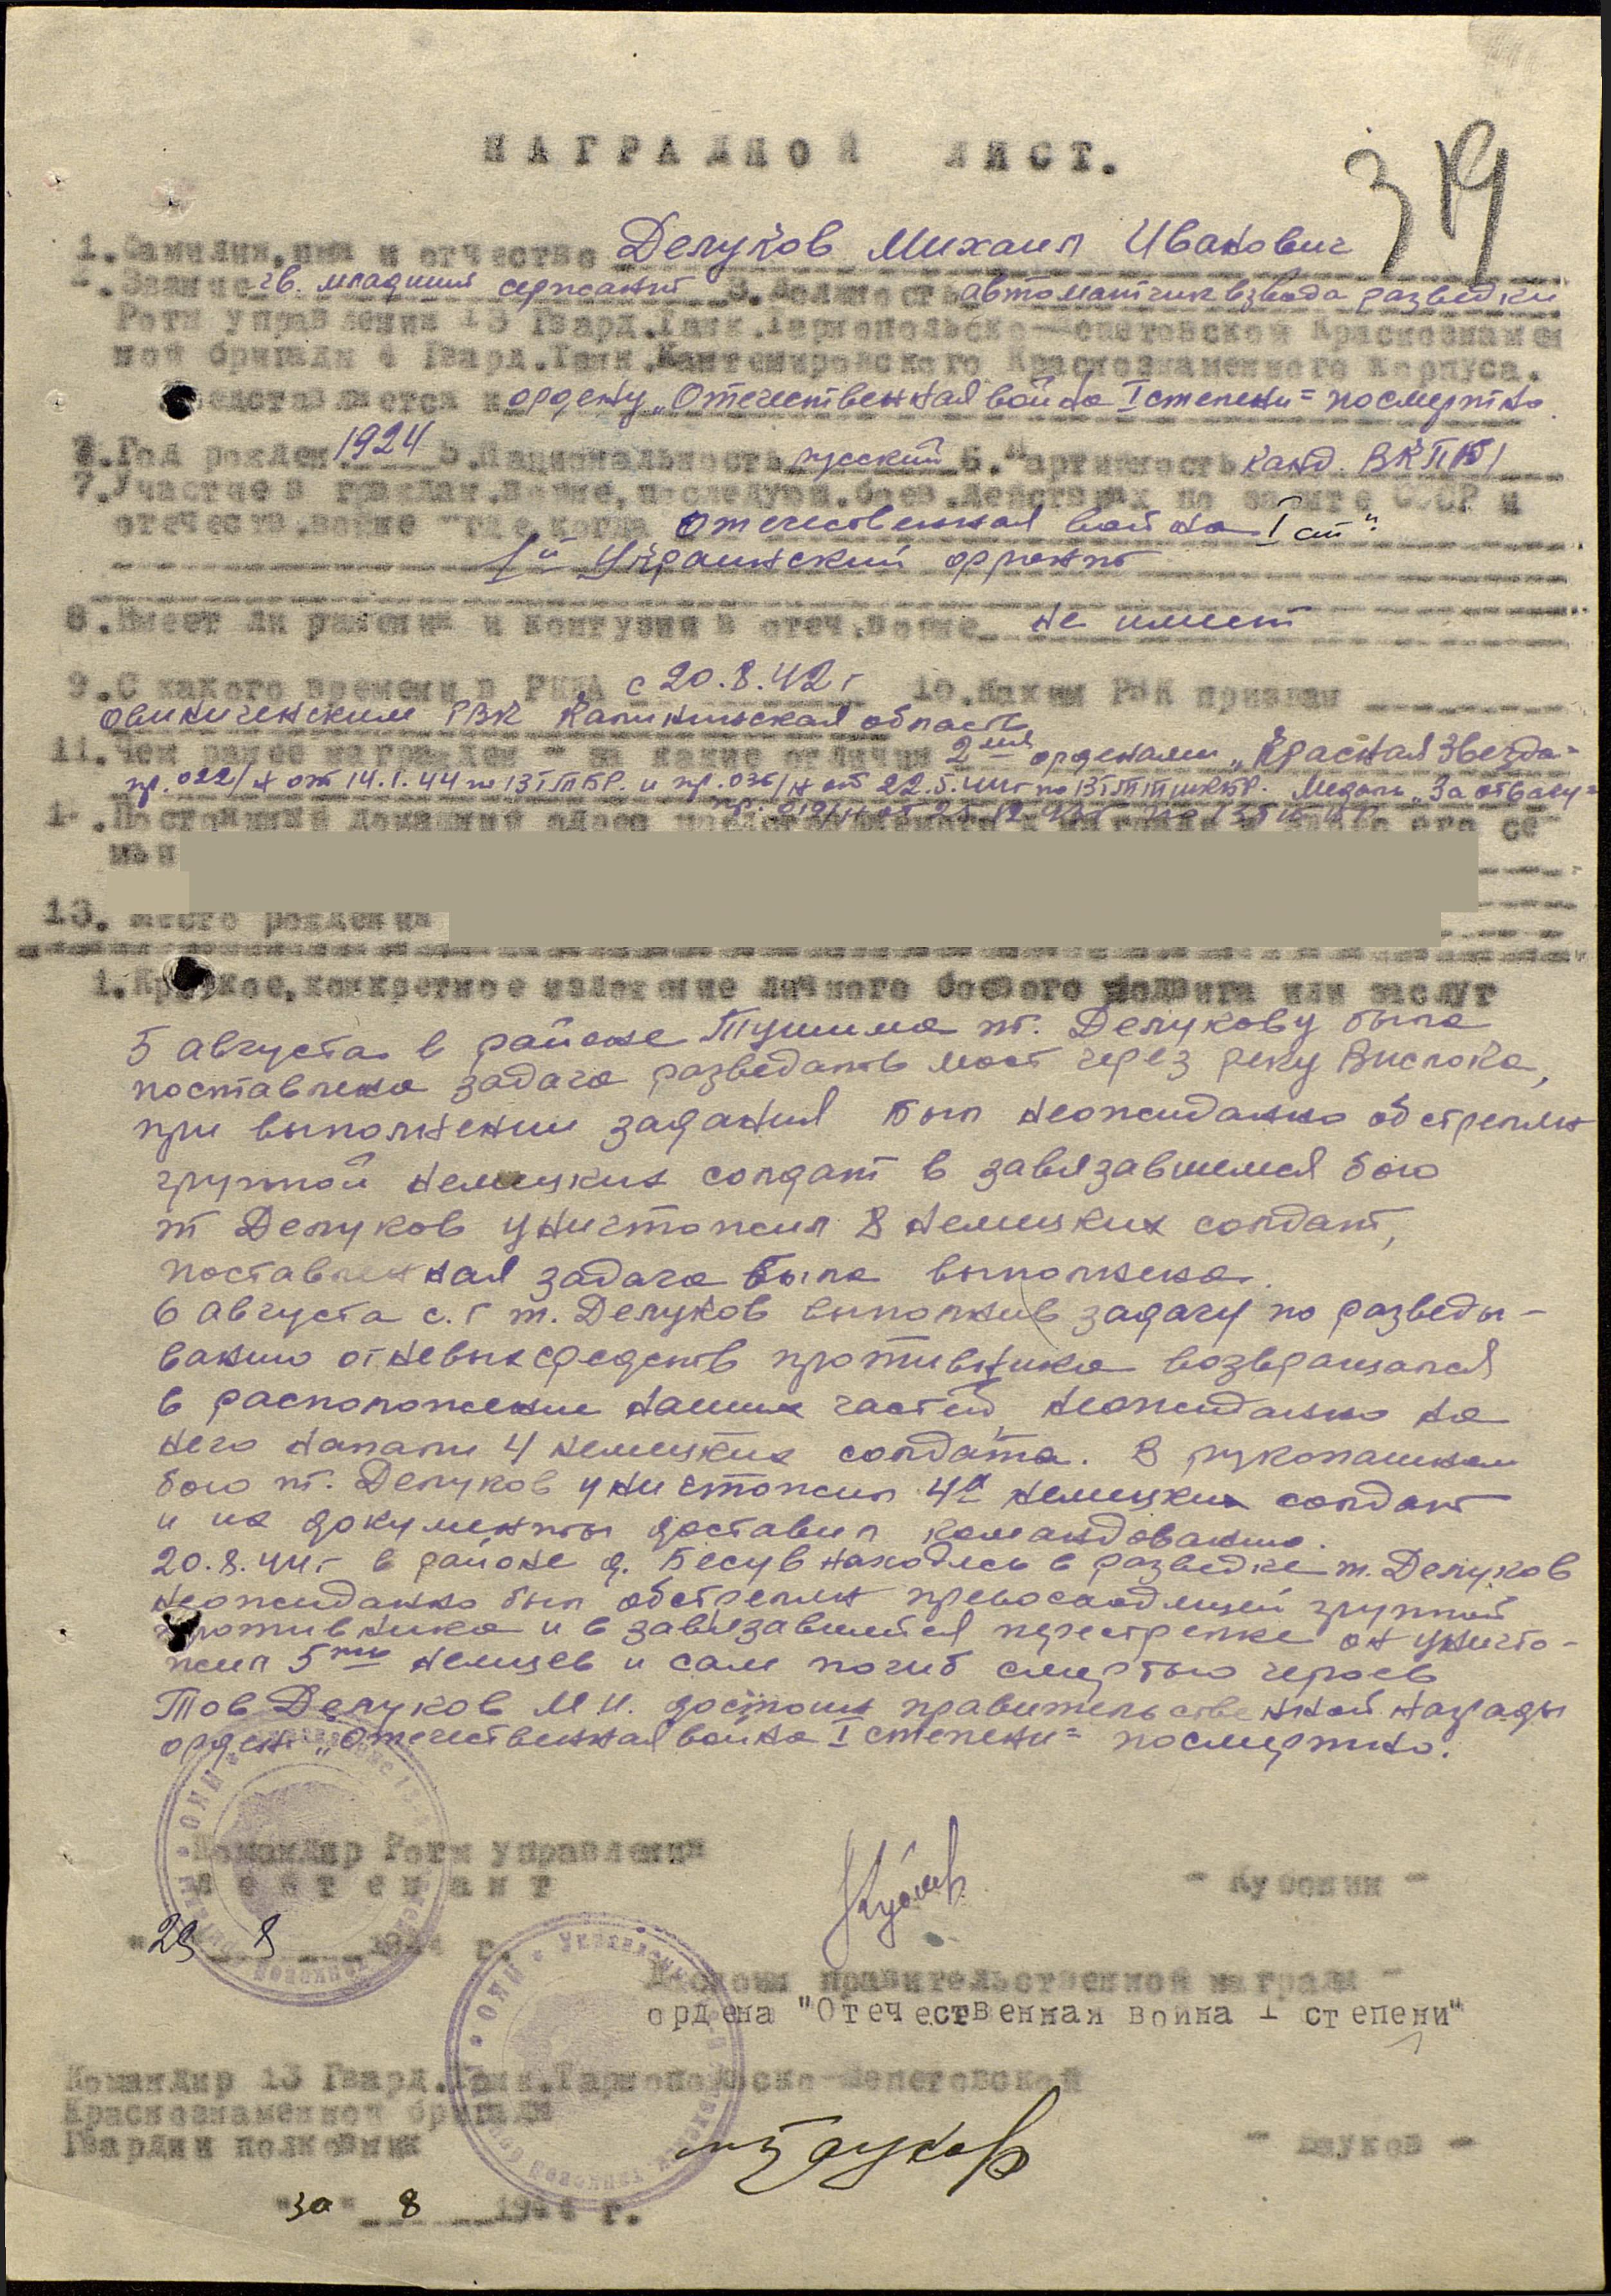 НАГРАДНОЙ ЛИСТ.
319
1. Фамилия, имя и отчество Делуков Михаил Иванович
2. Звание гв. младший сержант 3. Должность автоматчик взвода разведки
Роты управления 13 Гвард. Танк. Тарнопольско-Шепетовской Краснознамен
ной бригады 4 Гвард. Танк. Кантемировского Краснознаменного корпуса.
Представляется к ордену „Отечественная война I степени" посмертно.
4. Год рожден. 1924 5. Национальность русский 6. Партийность канд. ВКП(б)
7. Участие в граждан. войне, последующ. боев. действиях по защите СССР и
отечеств. войне – где, когда Отечественная война I ст".
1й Украинский фронт
8. Имеет ли ранения и контузии в отеч. войне не имеет
9. С какого времени в РККА с 20.8.42 г 10. Каким РВК призван
Овинищенским РВК Калининская область
11. Чем ранее награжден – за какие отличия 2мя орденами „Красная Звезда"
пр. 022/н от 14.1.44 по 13 ГТБР. и пр. 036/н от 22.5.44г по 13 ГТТШКБР. Медаль „За отвагу"
12. Постоянный домашний адрес представляемого к награде и адрес его се-
мьи
13. Место рождения
1. Краткое, конкретное изложение личного боевого подвига или заслуг
5 августа в районе Тушима т. Делукову была
поставлена задача разведать мост через реку Вислока,
при выполнении задания был неожиданно обстрелян
группой немецких солдат в завязавшемся бою
т Делуков уничтожил 8 немецких солдат,
поставленная задача была выполнена.
6 августа с.г т. Делуков выполнив задачу по разведы-
ванию огневых средств противника возвращался
в расположение наших частей, неожиданно на
него напали 4 немецких солдата. В рукопашном
бою т. Делуков уничтожил 4х немецких солдат
и их документы доставил командованию.
20.8.44г в районе д. Бесув находясь в разведке т. Делуков
неожиданно был обстрелян превосходящей группой
противника и в завязавшейся перестрелке он уничто-
жил 5ти немцев и сам погиб смертью героев
Тов Делуков М И. достоин правительственной награды
орден „Отечественная война I степени" посмертно.
Командир Роты управления
Лейтенант - Кубонин -
"29 8 1944 г.
Достоин правительственной награды –
ордена "Отечественная война I степени"
Командир 13 Гвард. Танк. Тарнопольско-Шепетовской
Краснознаменной бригады
Гвардии полковник - Бауков -
"30" 8 1944 г.